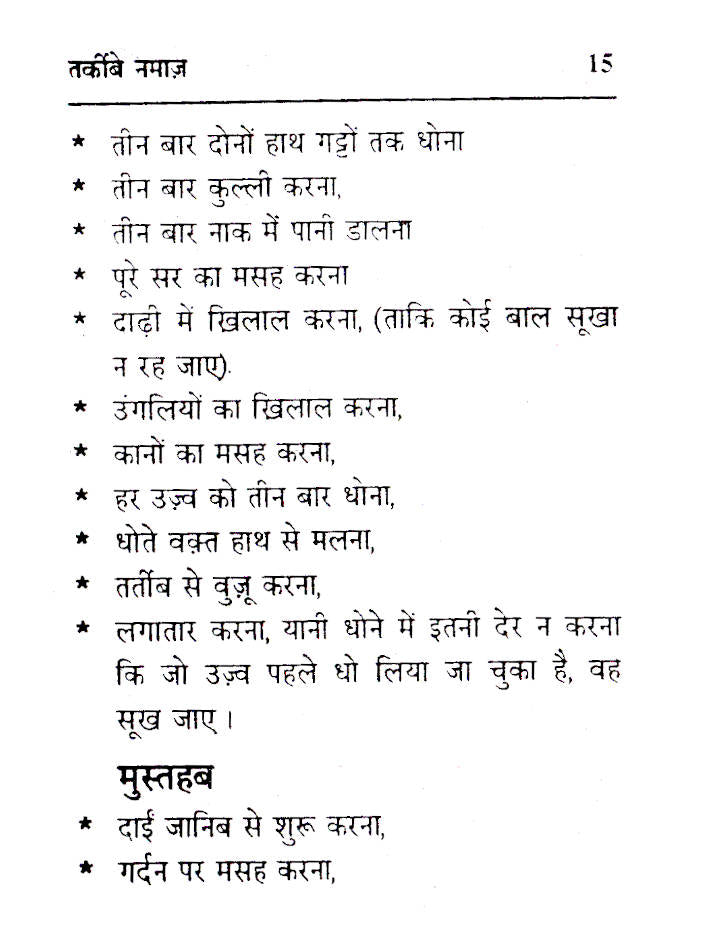 तर्कीबे नमाज़ 15
* तीन बार दोनों हाथ गट्टों तक धोना
* तीन बार कुल्ली करना,
* तीन बार नाक में पानी डालना
* पूरे सर का मसह करना
* दाढ़ी में ख़िलाल करना, (ताकि कोई बाल सूखा
न रह जाए).
* उंगलियों का ख़िलाल करना,
* कानों का मसह करना,
* हर उज़्व को तीन बार धोना,
* धोते वक़्त हाथ से मलना,
* तर्तीब से वुज़ू करना,
* लगातार करना, यानी धोने में इतनी देर न करना
कि जो उज़्व पहले धो लिया जा चुका है, वह
सूख जाए ।
मुस्तहब
* दाईं जानिब से शुरू करना,
* गर्दन पर मसह करना,